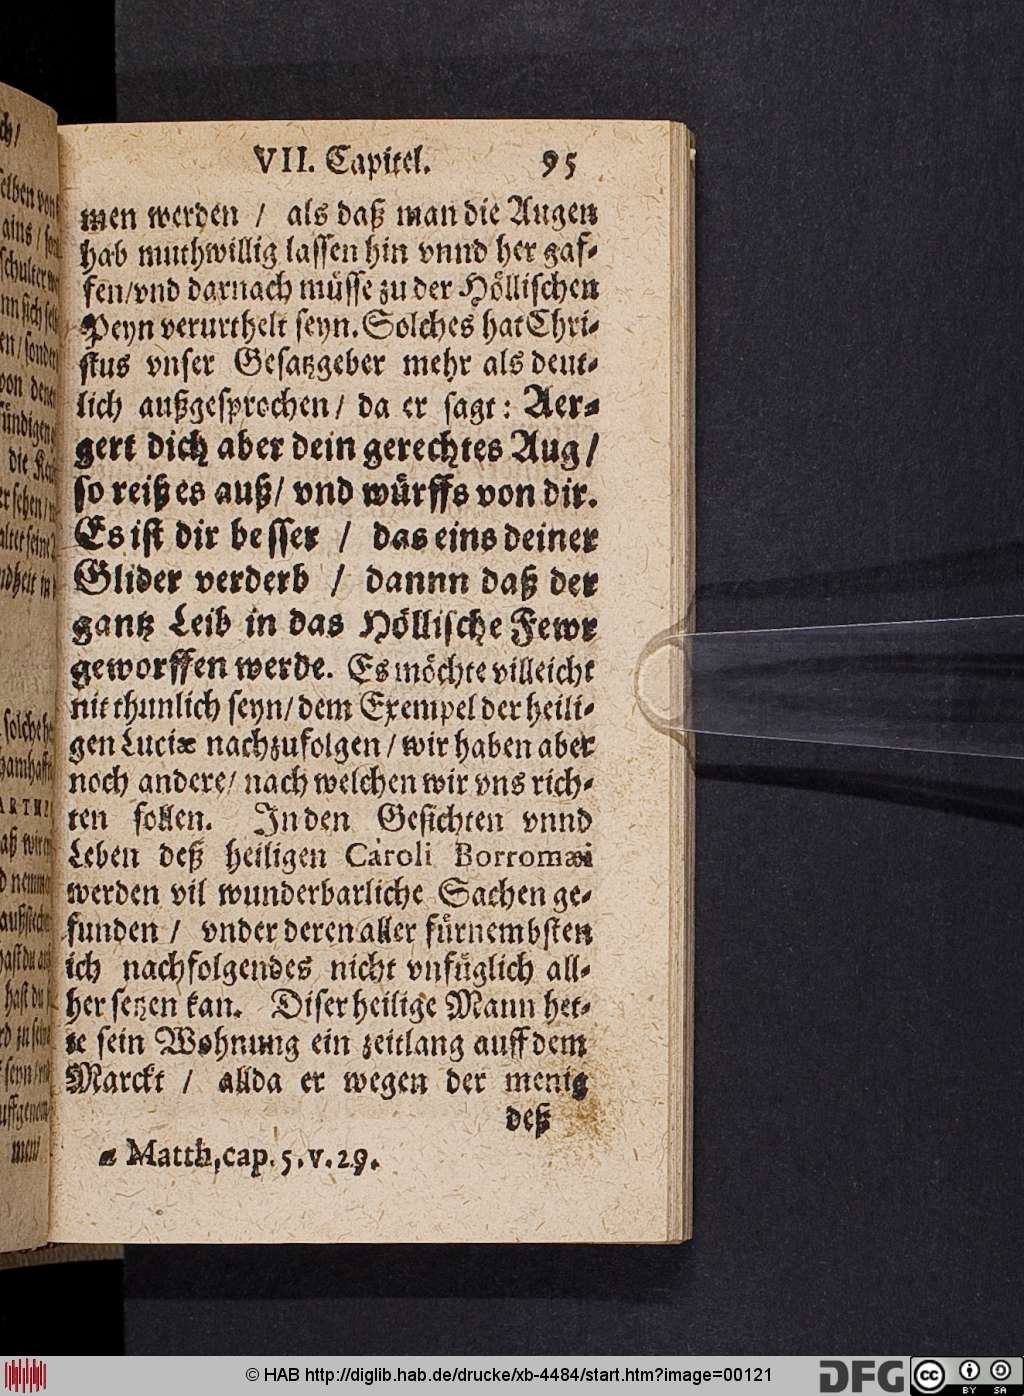 VII. Capitel. 95
men werden / als daß man die Augen
hab muthwillig lassen hin vnnd her gaf-
fen/vnd darnach müsse zu der Höllischen
Peyn verurthelt seyn. Solches hat Chri-
stus vnser Gesatzgeber mehr als deut-
lich außgesprochen / da er sagt: Aer-
gert dich aber dein gerechtes Aug /
so reiß es auß / vnd würffs von dir.
Es ist dir besser / das eins deiner
Glider verderb / dannn daß der
gantz Leib in das Höllische Fewr
geworffen werde. Es möchte villeicht
nit thunlich seyn / dem Exempel der heili-
gen Luciæ nachzufolgen / wir haben aber
noch andere / nach welchen wir vns rich-
ten sollen. In den Gesichten vnnd
Leben deß heiligen Caroli Borromæi
werden vil wunderbarliche Sachen ge-
funden / vnder deren aller fürnembsten
ich nachfolgendes nicht vnfüglich all-
her setzen kan. Diser heilige Mann het-
te sein Wohnung ein zeitlang auff dem
Marckt / allda er wegen der menig
deß
a Matth, cap. 5. v. 29.
© HAB http://diglib.hab.de/drucke/xb-4484/start.htm?image=00121
DFG
cc BY SA